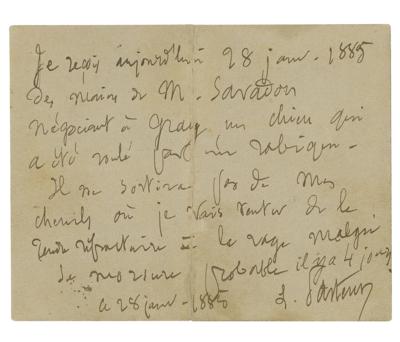 Je reçois aujourd'hui 28 janv. 1885
des mains de M. Savadon
négociant à un chien qui
a été roulé par un
Il ne sortira pas de mes
chenils où je vais tenter de le
rendre réfractaire à la rage malgré
sa morsure probable il y a 4 jours
ce 28 janv. 1885 L. Pasteur